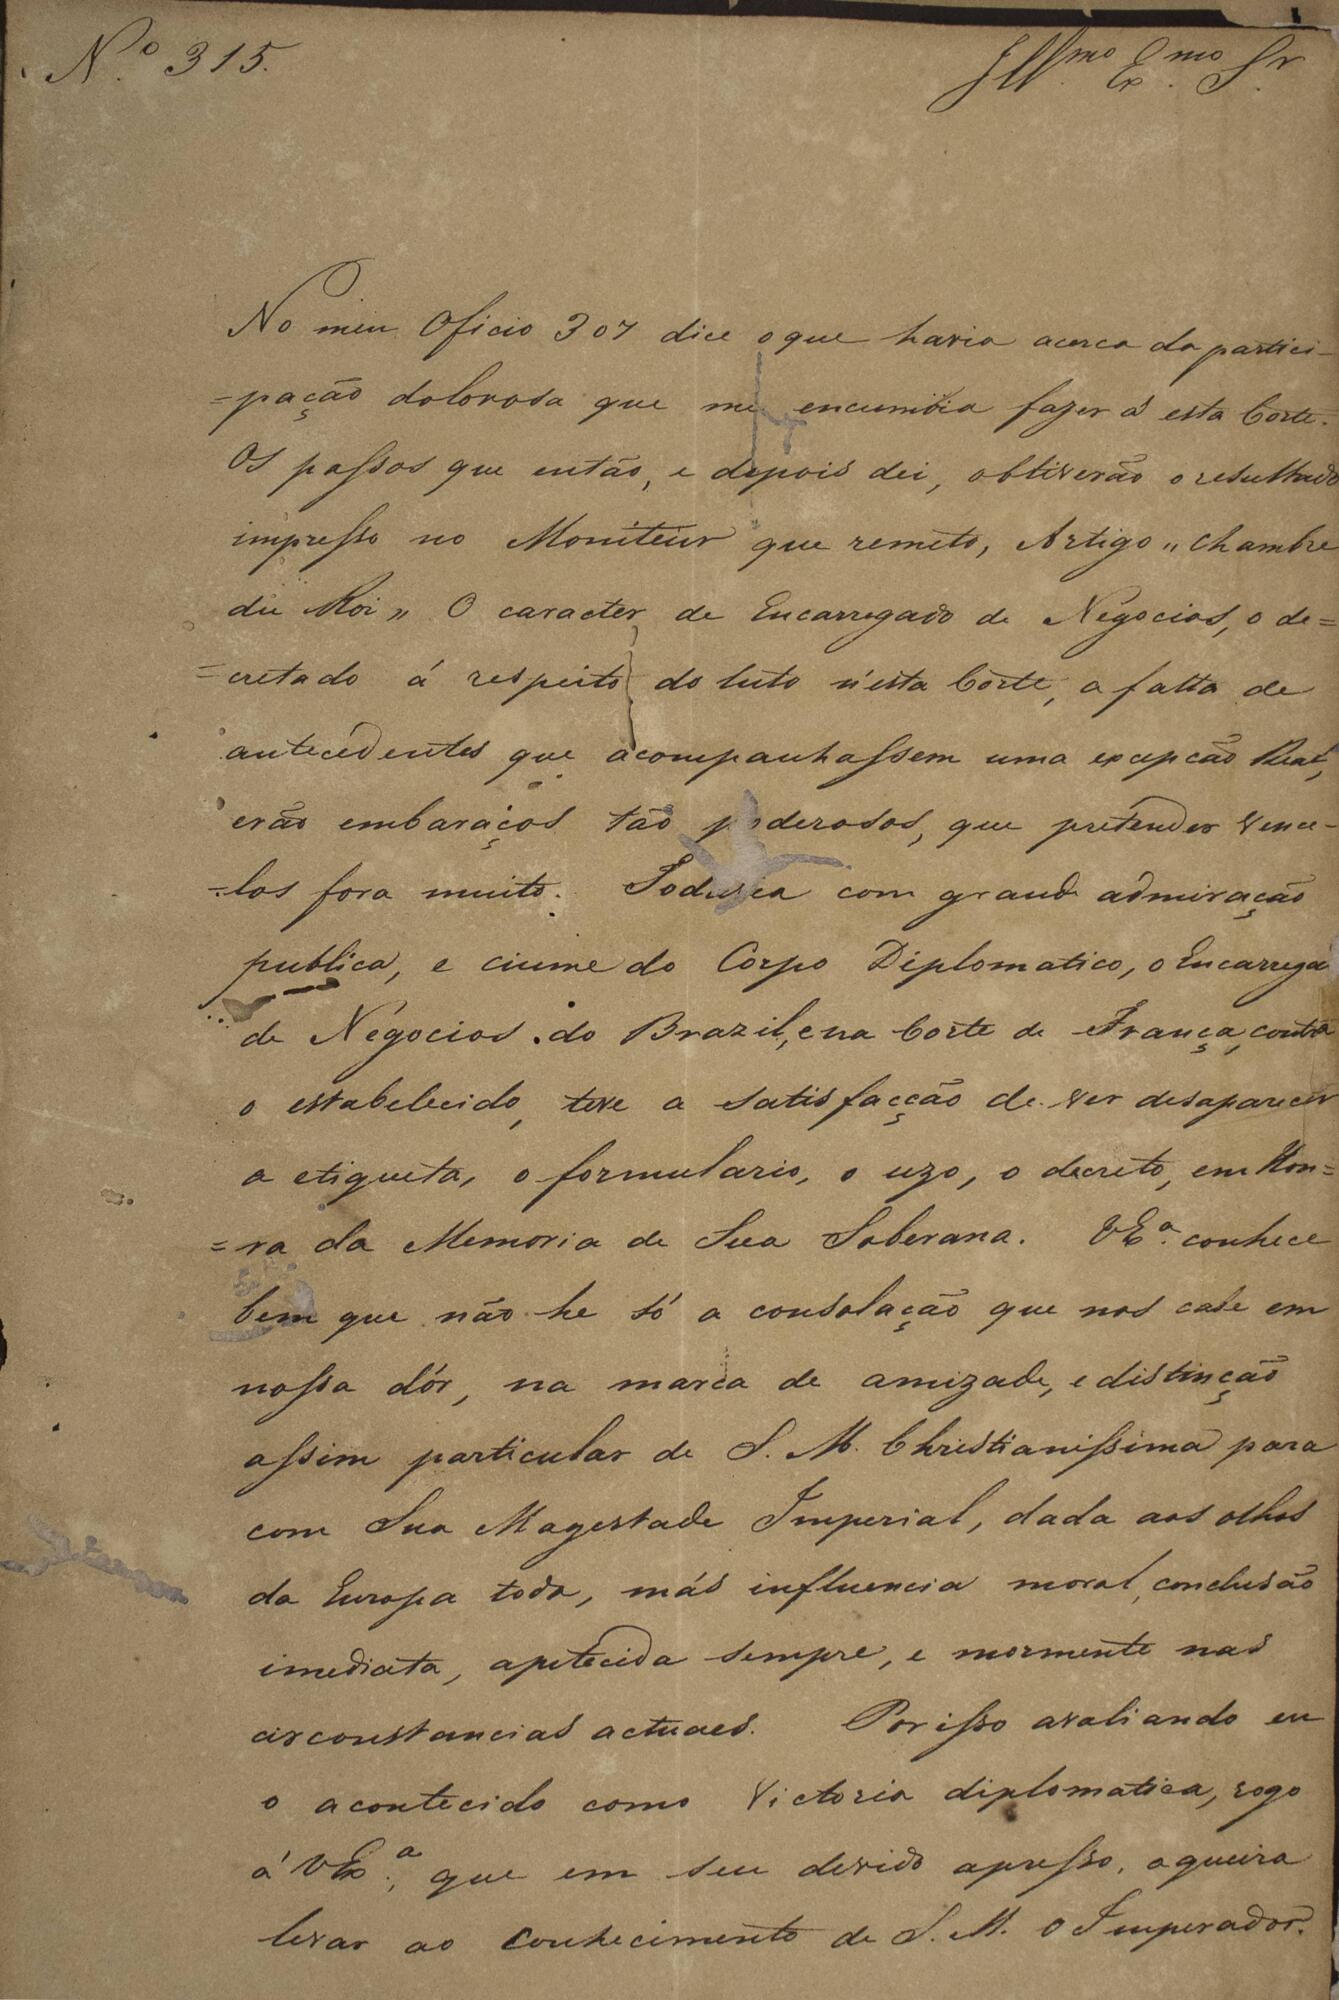 N.º 315.
Ill.mo Ex.mo Sr
No meu Oficio 307 dice o que havia acerca da partici-
=pação dolorosa que me encumbia fazer á esta Corte.
Os passos que então, e depois dei, obtiverão o resultado
impresso no Moniteur que remeto, Artigo „ Chambre
du Roi „ O caracter de Encarregado de Negocios, o de=
=cretado á respeito do luto n'esta Corte, a falta de
antecedentes que acompanhassem uma excepcão Real,
erão embaraços tão poderosos, que pretender vence-
-los fora muito. Todavia com grande admiração
publica, e ciume do Corpo Diplomatico, o Encarrega
de Negocios do Brazil, e na Corte de França, contra
o estabelecido, teve a satisfacção de ver desaparecer
a etiqueta, o formulario, o uzo, o decreto, em Hon=
=ra da Memoria de Sua Soberana. VEx.ª conhece
bem que não he só a consolação que nos cabe em
nossa dór, na marca de amizade, e distinção
assim particular de S. M. Christianissima para
com Sua Magestade Imperial, dada aos olhos
da Europa toda, más influencia moral, conclusão
imediata, apetecida sempre, e mormente nas
circonstancias actuaes. Por isso avaliando eu
o acontecido como Victoria diplomatica, rogo
á VEx.ª, que em seu devido apresso, a queira
levar ao conhecimento de S. M. O Imperador.